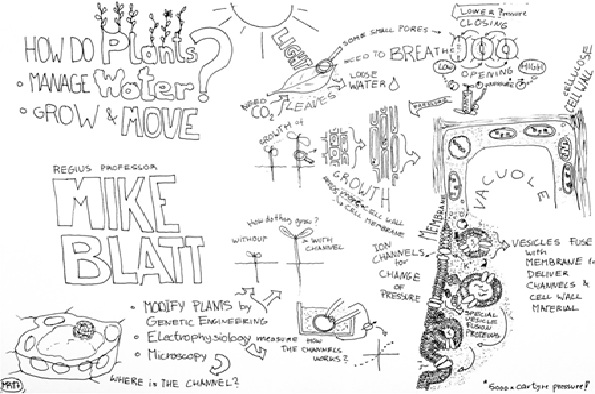 HOW DO Plants
• MANAGE Water?
• GROW & MOVE
REGIUS PROFESSOR
MIKE
BLATT
LIGHT
SOME SMALL PORES
NEED TO BREATHE
LOOSE
WATER
NEED
CO2
LEAVES
LOWER Pressure
CLOSING
LOW
HIGH
OPENING
pressure
CELLULOSE
CELL WALL
GROWTH of
GROWTH
CELL WALL
& CELL MEMBRANE
VACUOLE
MEMBRANE
How do they grow?
WITHOUT
WITH
CHANNEL
ION
CHANNELS
for
CHANGE
OF
PRESSURE
VESICLES FUSE
with
MEMBRANE to
DELIVER
CHANNELS &
CELL WALL
MATERIAL
SPECIAL
VESICLE
FUSION
PROTEINS
• MODIFY PLANTS by
GENETIC ENGINEERING
• Electrophysiology measure HOW
THE CHANNELS
WORKS?
• Microscopy
WHERE is THE CHANNEL?
"500% car tyre pressure!"